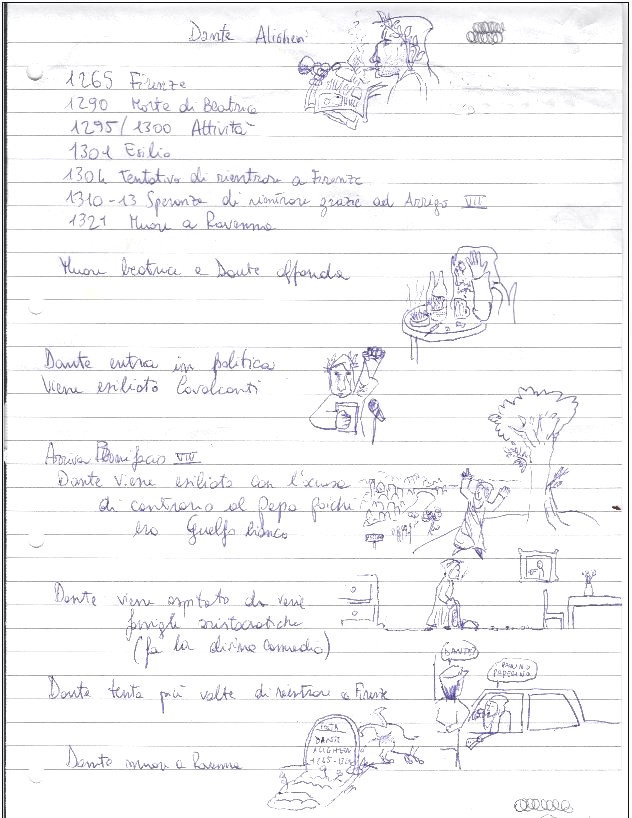 Dante Alighieri
1265 Firenze
1290 Morte di Beatrice
1295/1300 Attività
1301 Esilio
1304 tentativo di rientrare a Firenze
1310-13 Speranza di rientrare grazie ad Arrigo VII
1321 Muore a Ravenna
Muore beatrice e Dante affonda
Dante entra in politica
Viene esiliato Cavalcanti
Arriva Bonifacio VIII
Dante viene esiliato con l'scusa
di contrario al Papa poiche
era Guelfo bianco
Dante viene ospitato da varie
famiglie aristocratiche
(fa la divina commedia)
DANTE
PAPERINO
Dante tenta più volte di rientrare a Firenze
DANTE
ALIGHIERI
1265-1321
Dante muore a Ravenna